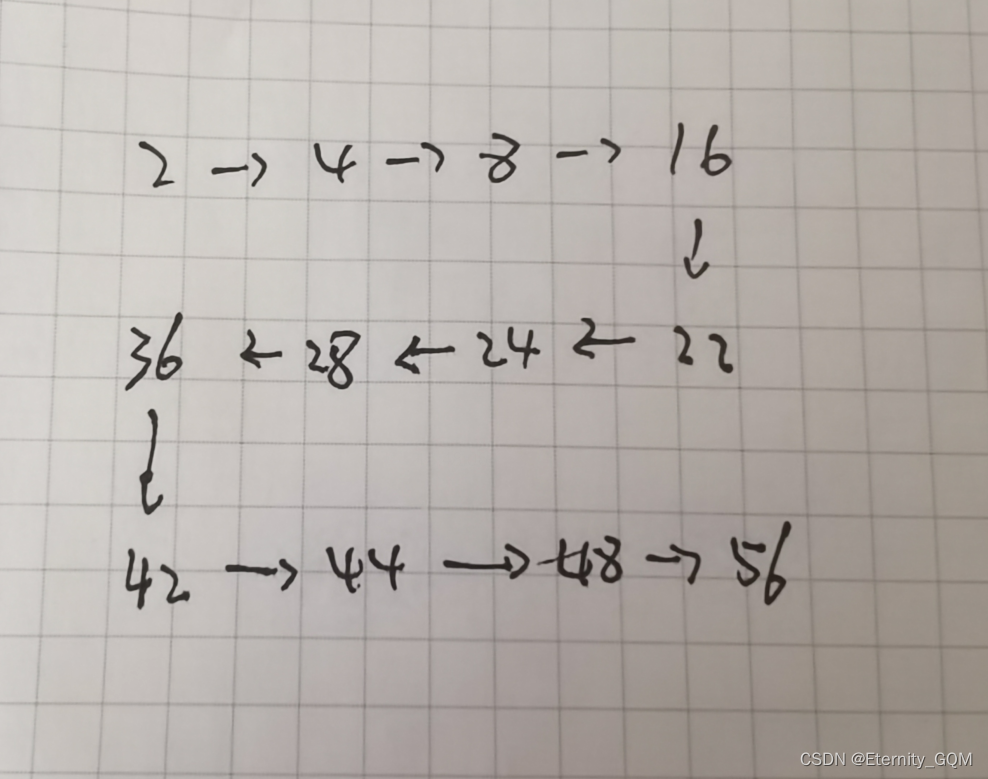 2 → 4 → 8 → 16
↓
36 ← 28 ← 24 ← 22
↓
42 → 44 → 48 → 56
CSDN @Eternity_GQM